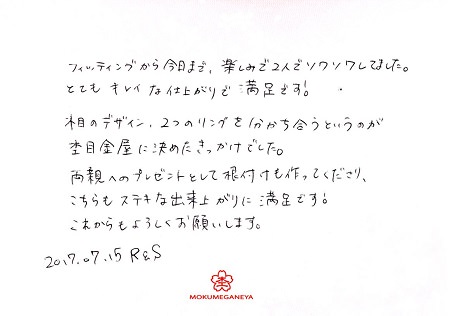 フィッティングから今日まで、楽しみで2人でソワソワしてました。
とても キレイな仕上がりで満足です!
木目のデザイン、2つのリングを分かち合うというのが
杢目金屋に決めたきっかけでした。
両親へのプレゼントとして根付けも作ってくださり、
こちらもステキな出来上がりに満足です!
これからもよろしくお願いします。
2017.07.15 R&S
MOKUMEGANEYA